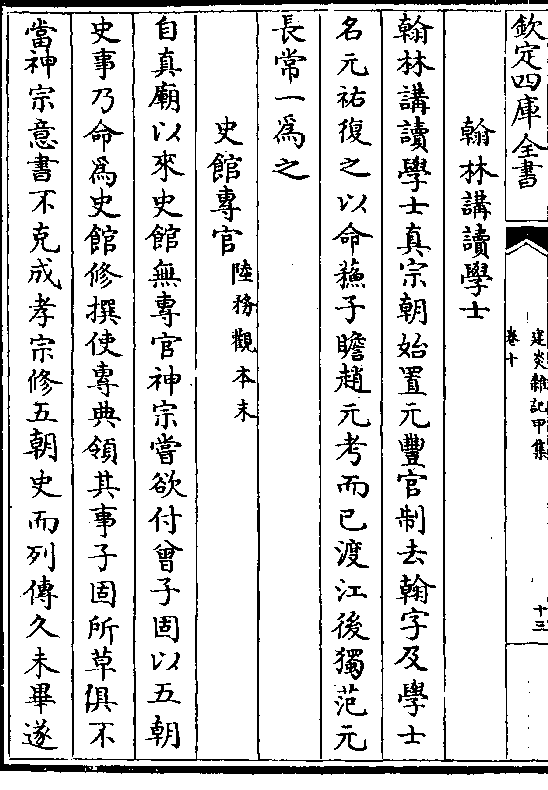 欽定四庫全書
建炎雜記甲集
卷十
十三
翰林講讀學士
翰林講讀學士真宗朝始置元豐官制去翰字及學士
名元祐復之以命蘓子瞻趙元考而已渡江後獨范元
長常一為之
史館專官陸務觀本末
自真廟以來史館無專官神宗嘗欲付曾子固以五朝
史事乃命爲史館修撰使專典領其事子固所草俱不
當神宗意書不克成孝宗修五朝史而列傳久未畢遂